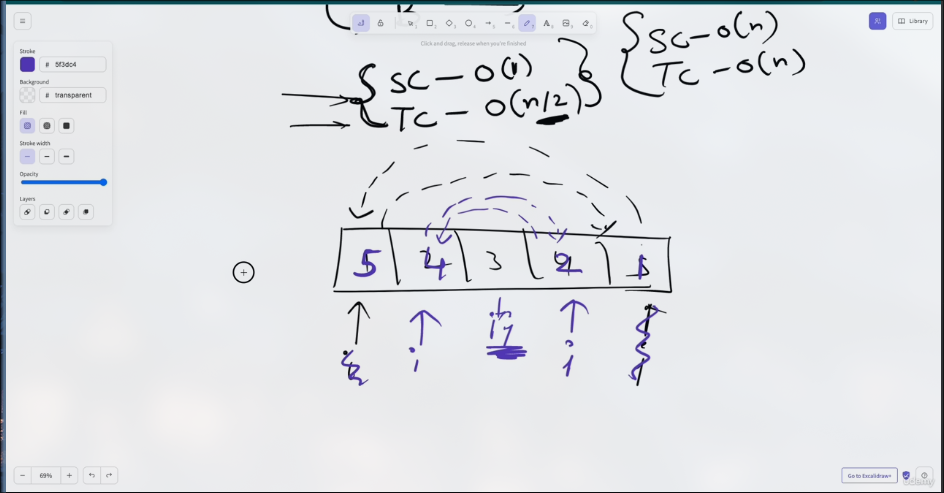 Library
Click and drag, release when you're finished
Stroke
# 5f3dc4
Background
# transparent
Fill
Stroke width
Opacity
Layers
SC - O(1)
TC - O(n/2)
SC - O(n)
TC - O(n)
5 4 3 2 1
i j
69%
Go to Excalidraw+
Udemy